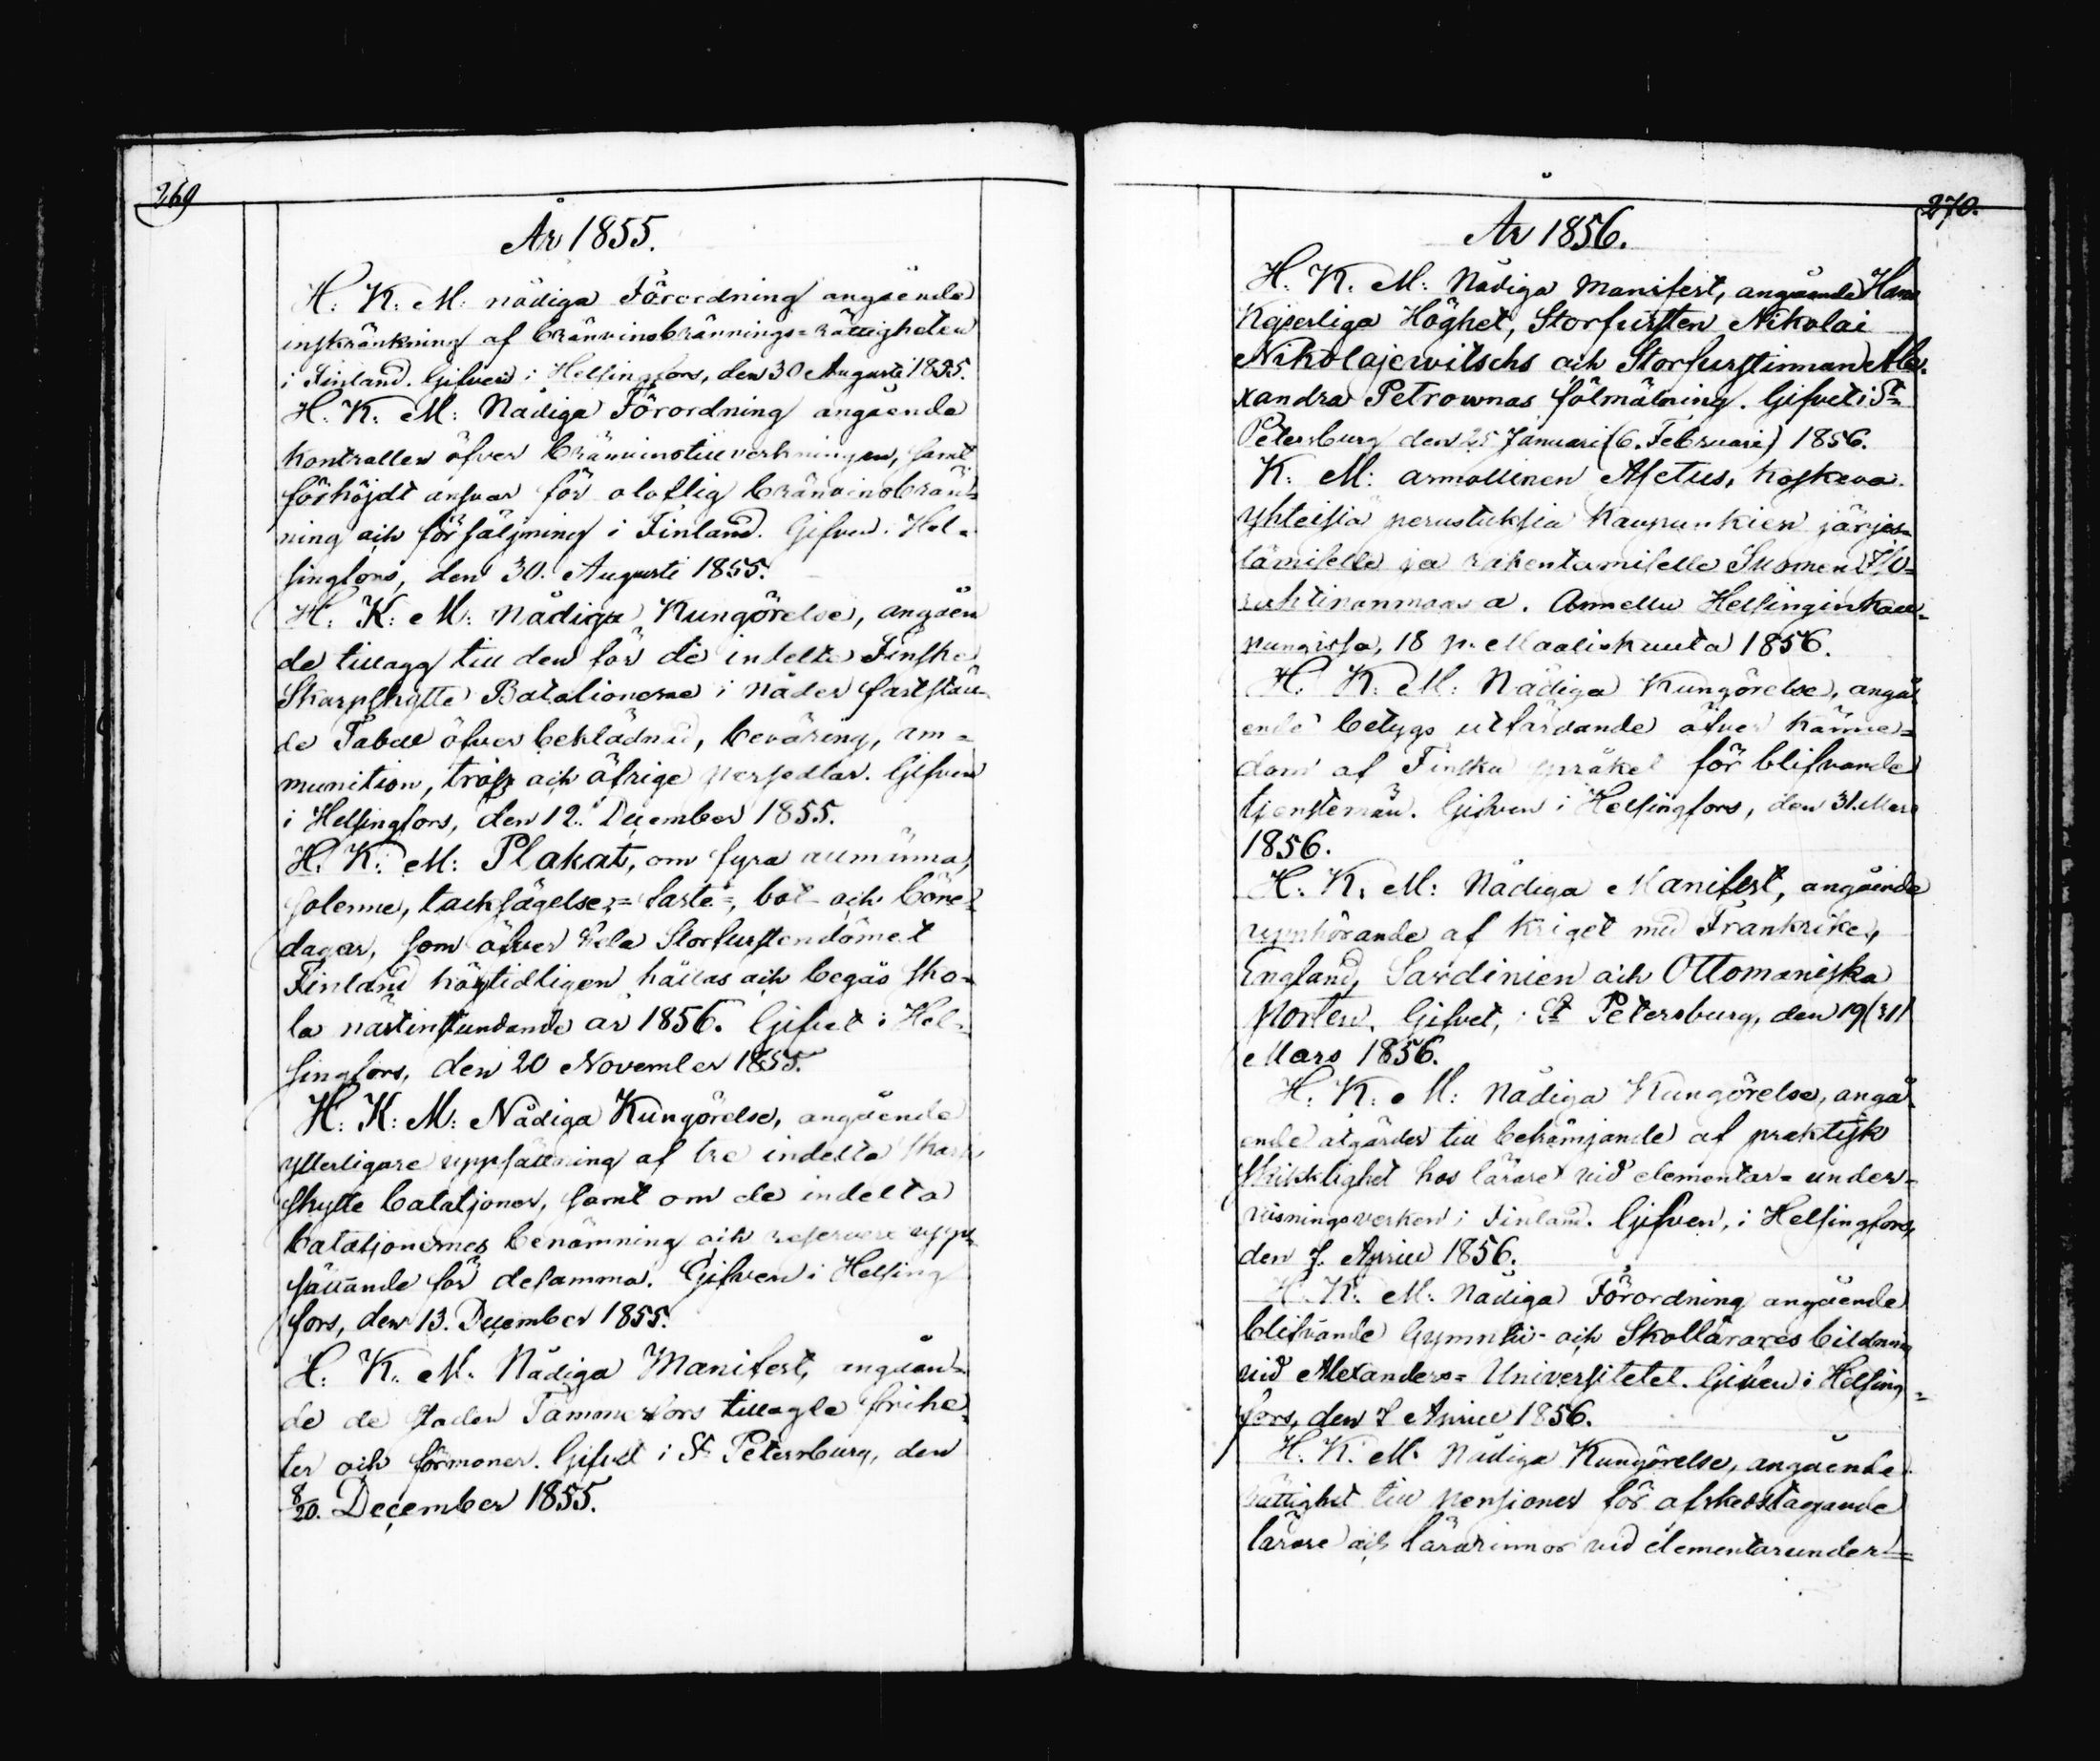 269
År 1855.
H: K: M: nådiga Förordning angående
inskränkning af bränvinsbrännings=rättigheten
i Finland. Gifven i Helsingfors, den 30 Augusti 1855.
H: K: M: Nådiga Förordning angående
kontrollen öfver bränvinstillverkningen, samt
förhöjdt ansvar för oloflig bränvinsbrän=
ning och försäljning i Finland. Gifven i Hel=
singfors, den 30. Augusti 1855.
H: K: M: Nådiga Kungörelse, angåen
de tillägg till den för de indelte Finske
Skarpskytte Batalionerne i nåder faststäl
de Tabell öfver beklädnad, beväring, am=
munition, tröss och öfrige persedlar. Gifven
i Helsingfors, den 12. December 1855.
H. K: M: Plakat, om fyra allmänna,
solenne, tacksägelse=, faste=, bot- och böne=
dagar, som öfver hela Storfurstendömet
Finland högtidligen hållas och begås sko=
la nästinstundande år 1856. Gifvet i Hel=
singfors, den 20 November 1855.
H: K: M: Nådiga Kungörelse, angående
ytterligare uppsättning af tre indelta skarp
skytte bataljoner, samt om de indelta
bataljonernes benämning och reservers upp=
sättande för desamma. Gifven i Helsing
fors, den 13. December 1855.
H: K: M. Nådiga Manifest, angåen=
de de staden Tammerfors tillagde frihe=
ter och förmoner. Gifvet i St Petersburg, den
8/20. December 1855.
270.
År 1856.
H. K. M: Nådiga Manifest, angående Hans
Kejserliga Höghet, Storfursten Nikolai
Nikolajewitschs och Storfurstinnan Ale=
xandra Petrownas förmälning. Gifvet i St
Petersburg den 25 Januari (6. Februari) 1856.
K: M: armollinen Asetus, koskeva
yhteisiä perustuksia kaupunkien järjes=
tämiselle ja rakentamiselle Suomen Iso=
ruhtinanmaassa. Annettu Helsinginkau=
pungissa, 18 p. Maaliskuuta 1856.
H. K: M: Nådiga Kungörelse, angå
ende betygs utfärdande öfver känne=
dom af Finska språket för blifvande
tjenstemän. Gifven i Helsingfors, den 31. Mars
1856.
H: K: M: Nådiga Manifest, angående
upphörande af kriget med Frankrike,
England, Sardinien och Ottomaniska
Porten. Gifvet, i St Petersburg, den 19(31)
Mars 1856.
H: K: M: Nådiga Kungörelse, angå
ende åtgärder till befrämjande af praktisk
skicklighet hos lärare vid elementar=under=
visningsverken i Finland. Gifven, i Helsingfors,
den 7. April 1856.
H. K: M: Nådiga Förordning angående
blifvande Gymnasii- och Skollärares bildning
vid Alexanders=Universitetet. Gifven i Helsing=
fors, den 7 April 1856.
H. K. M: Nådiga Kungörelse, angående
rättighet till pensioner för afskedstagande
lärare och lärarinnor vid elementarunder=